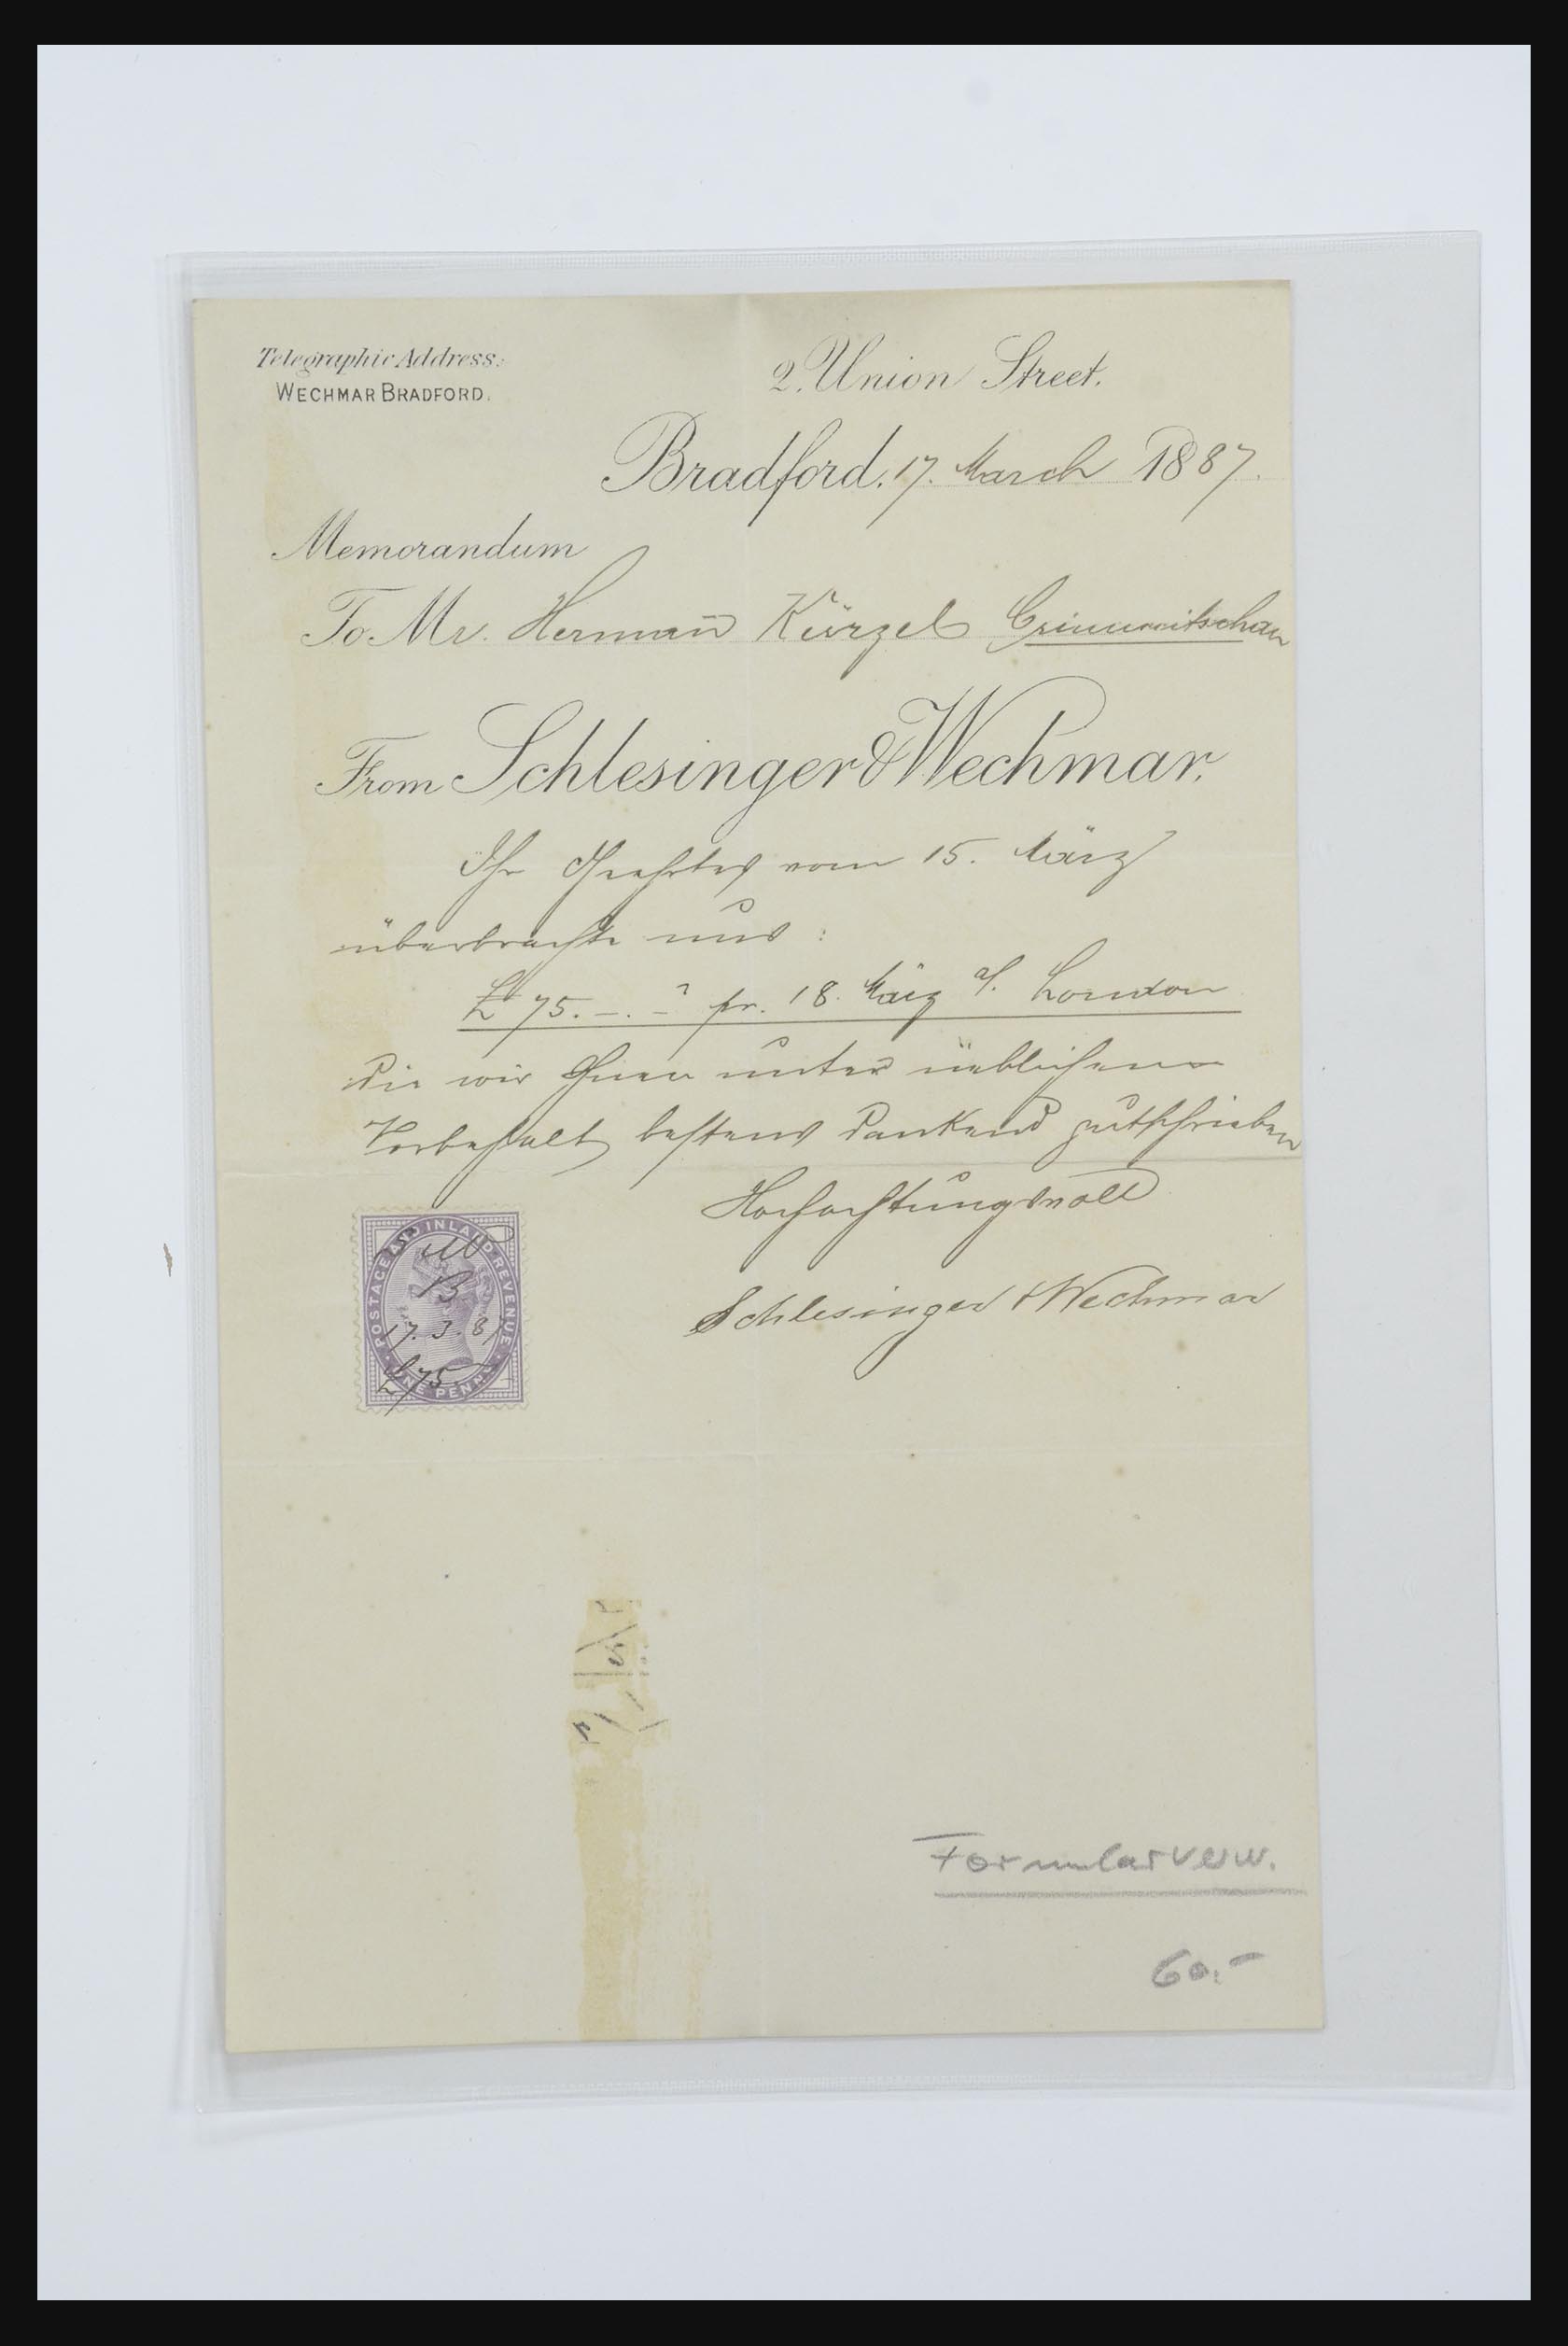 Telegraphic Address:
WECHMAR BRADFORD.
2. Union Street.
Bradford. 17. March 1887.
Memorandum
To Mr. Hermañ Kürzel Crimmitschau
From Schlesinger & Wechmar.
Ihr Geehrtes vom 15. März
überbrachte uns:
£ 75.–.– pr. 18. März a/. London
die wir Ihnen unter üeblichem
Vorbehalt bestens dankend gutschrieben
Hochachtungsvoll
Schlesinger & Wechmar
POSTAGE AND INLAND REVENUE
S & W
B
17.3.87
£75
ONE PENNY
Formularverw.
60.–